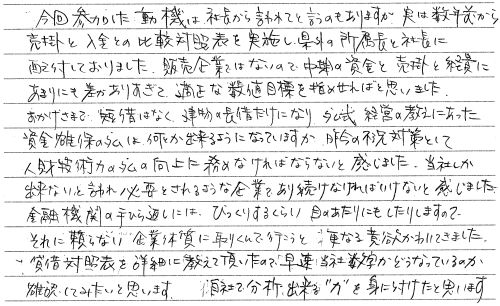 今回参加した動機は社長から言われてと言うのもありますが実は数年前から
売掛と入金との比較対照表を実施し県外の所属長と社長に
配付しておりました。販売企業ではないので中期の資金と売掛と経費に
あまりにも差がありすぎて適正な数値目標を指せればと思いました。
おかげさまで短借はなく建物の長借だけになりダム式経営の教えにあった
資金確保のダムは何とか出来るようになっていますが昨今の不況対策として
人財技術力のダムの向上に務めなければならないと感じました。当社しか
出来ないと言われ必要とされるような企業であり続けなければいけないと感じました。
金融機関の手から返しには、びっくりするくらい目のあたりにもしたりしますので
それに頼らない企業体質に取りくんで行こうと更なる意欲がわいてきました。
貸借対照表を詳細に教えて頂いたので早速当社数値がどうなっているのか
確認してみたいと思います。自社で分析出来る"力"を身に付けたと思います